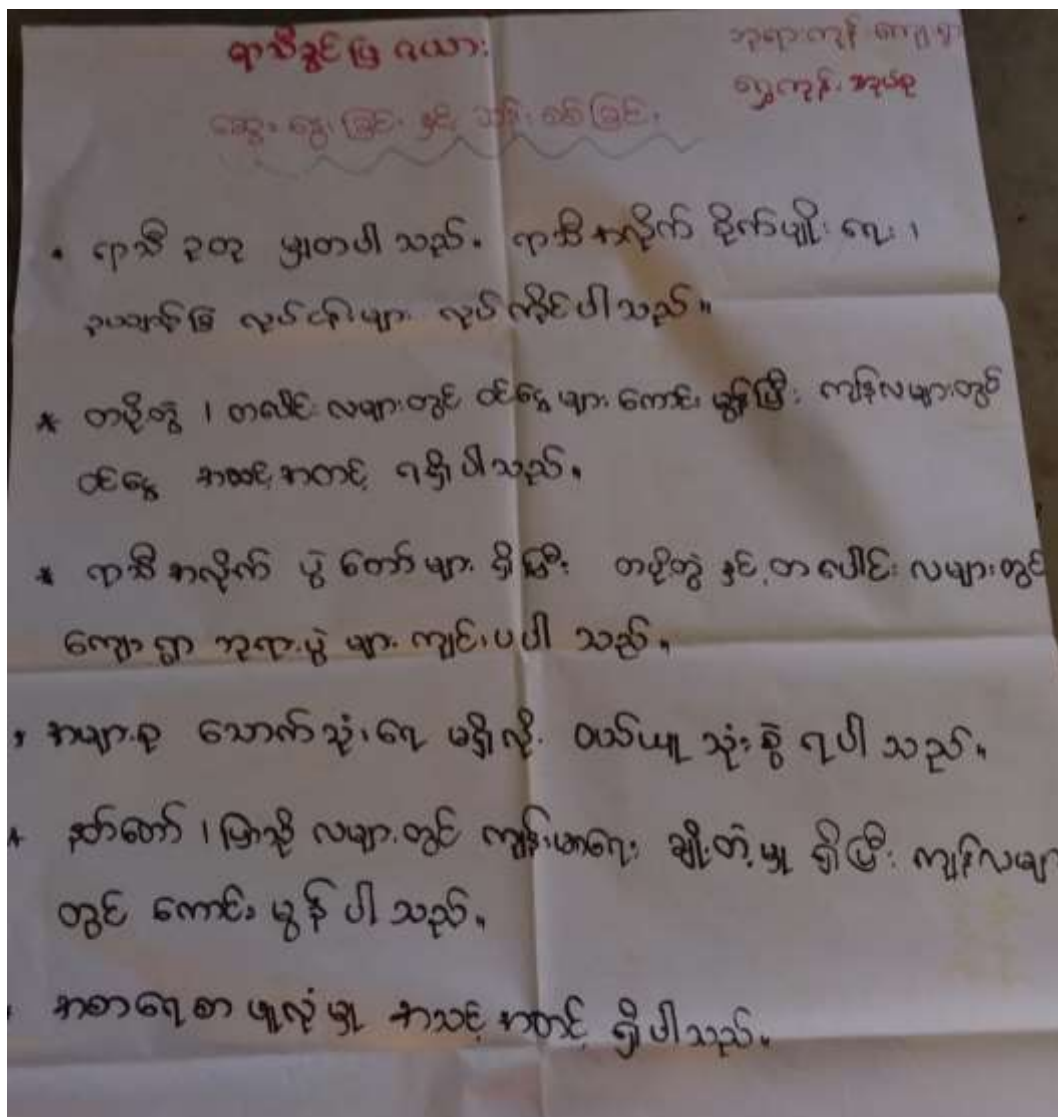 ရာသီခွင်ပြ ဇယား
ဘုရားကုန်း ကျေးရွာ
ရွှေကုန်း အုပ်စု
ဆွေးနွေးခြင်း နှင့် သန်းစစ်ခြင်း
• ရာသီ ဥတု မျှတပါ သည်။ ရာသီ အလိုက် စိုက်ပျိုး ရေး ၊
ဥယျာဉ်ခြံ လုပ်ငန်းများ လုပ်ကိုင်ပါသည်။
* တပို့တွဲ ၊ တပေါင်း လများတွင် ဝင်ငွေ များ ကောင်း မွန်ပြီး ကျန်လများတွင်
ဝင်ငွေ အသင့် အတင့် ရရှိ ပါသည်။
* ရာသီ အလိုက် ပွဲ တော် များ ရှိပြီး တပို့တွဲ နှင့် တပေါင်း လများတွင်
ကျေးရွာ ဘုရားပွဲ များ ကျင်းပပါ သည်။
* အများစု သောက်သုံးရေ မရှိလို့ ဝယ်ယူ သုံးစွဲ ရပါ သည်။
* နတ်တော် ၊ ပြာသို လများတွင် ကျန်းမာရေး ချို့တဲ့မှု ရှိပြီး ကျန်လများ
တွင် ကောင်းမွန် ပါ သည်။
• အစာရေစာ ဖူလုံမှု အသင့် အတင့် ရှိပါသည်။